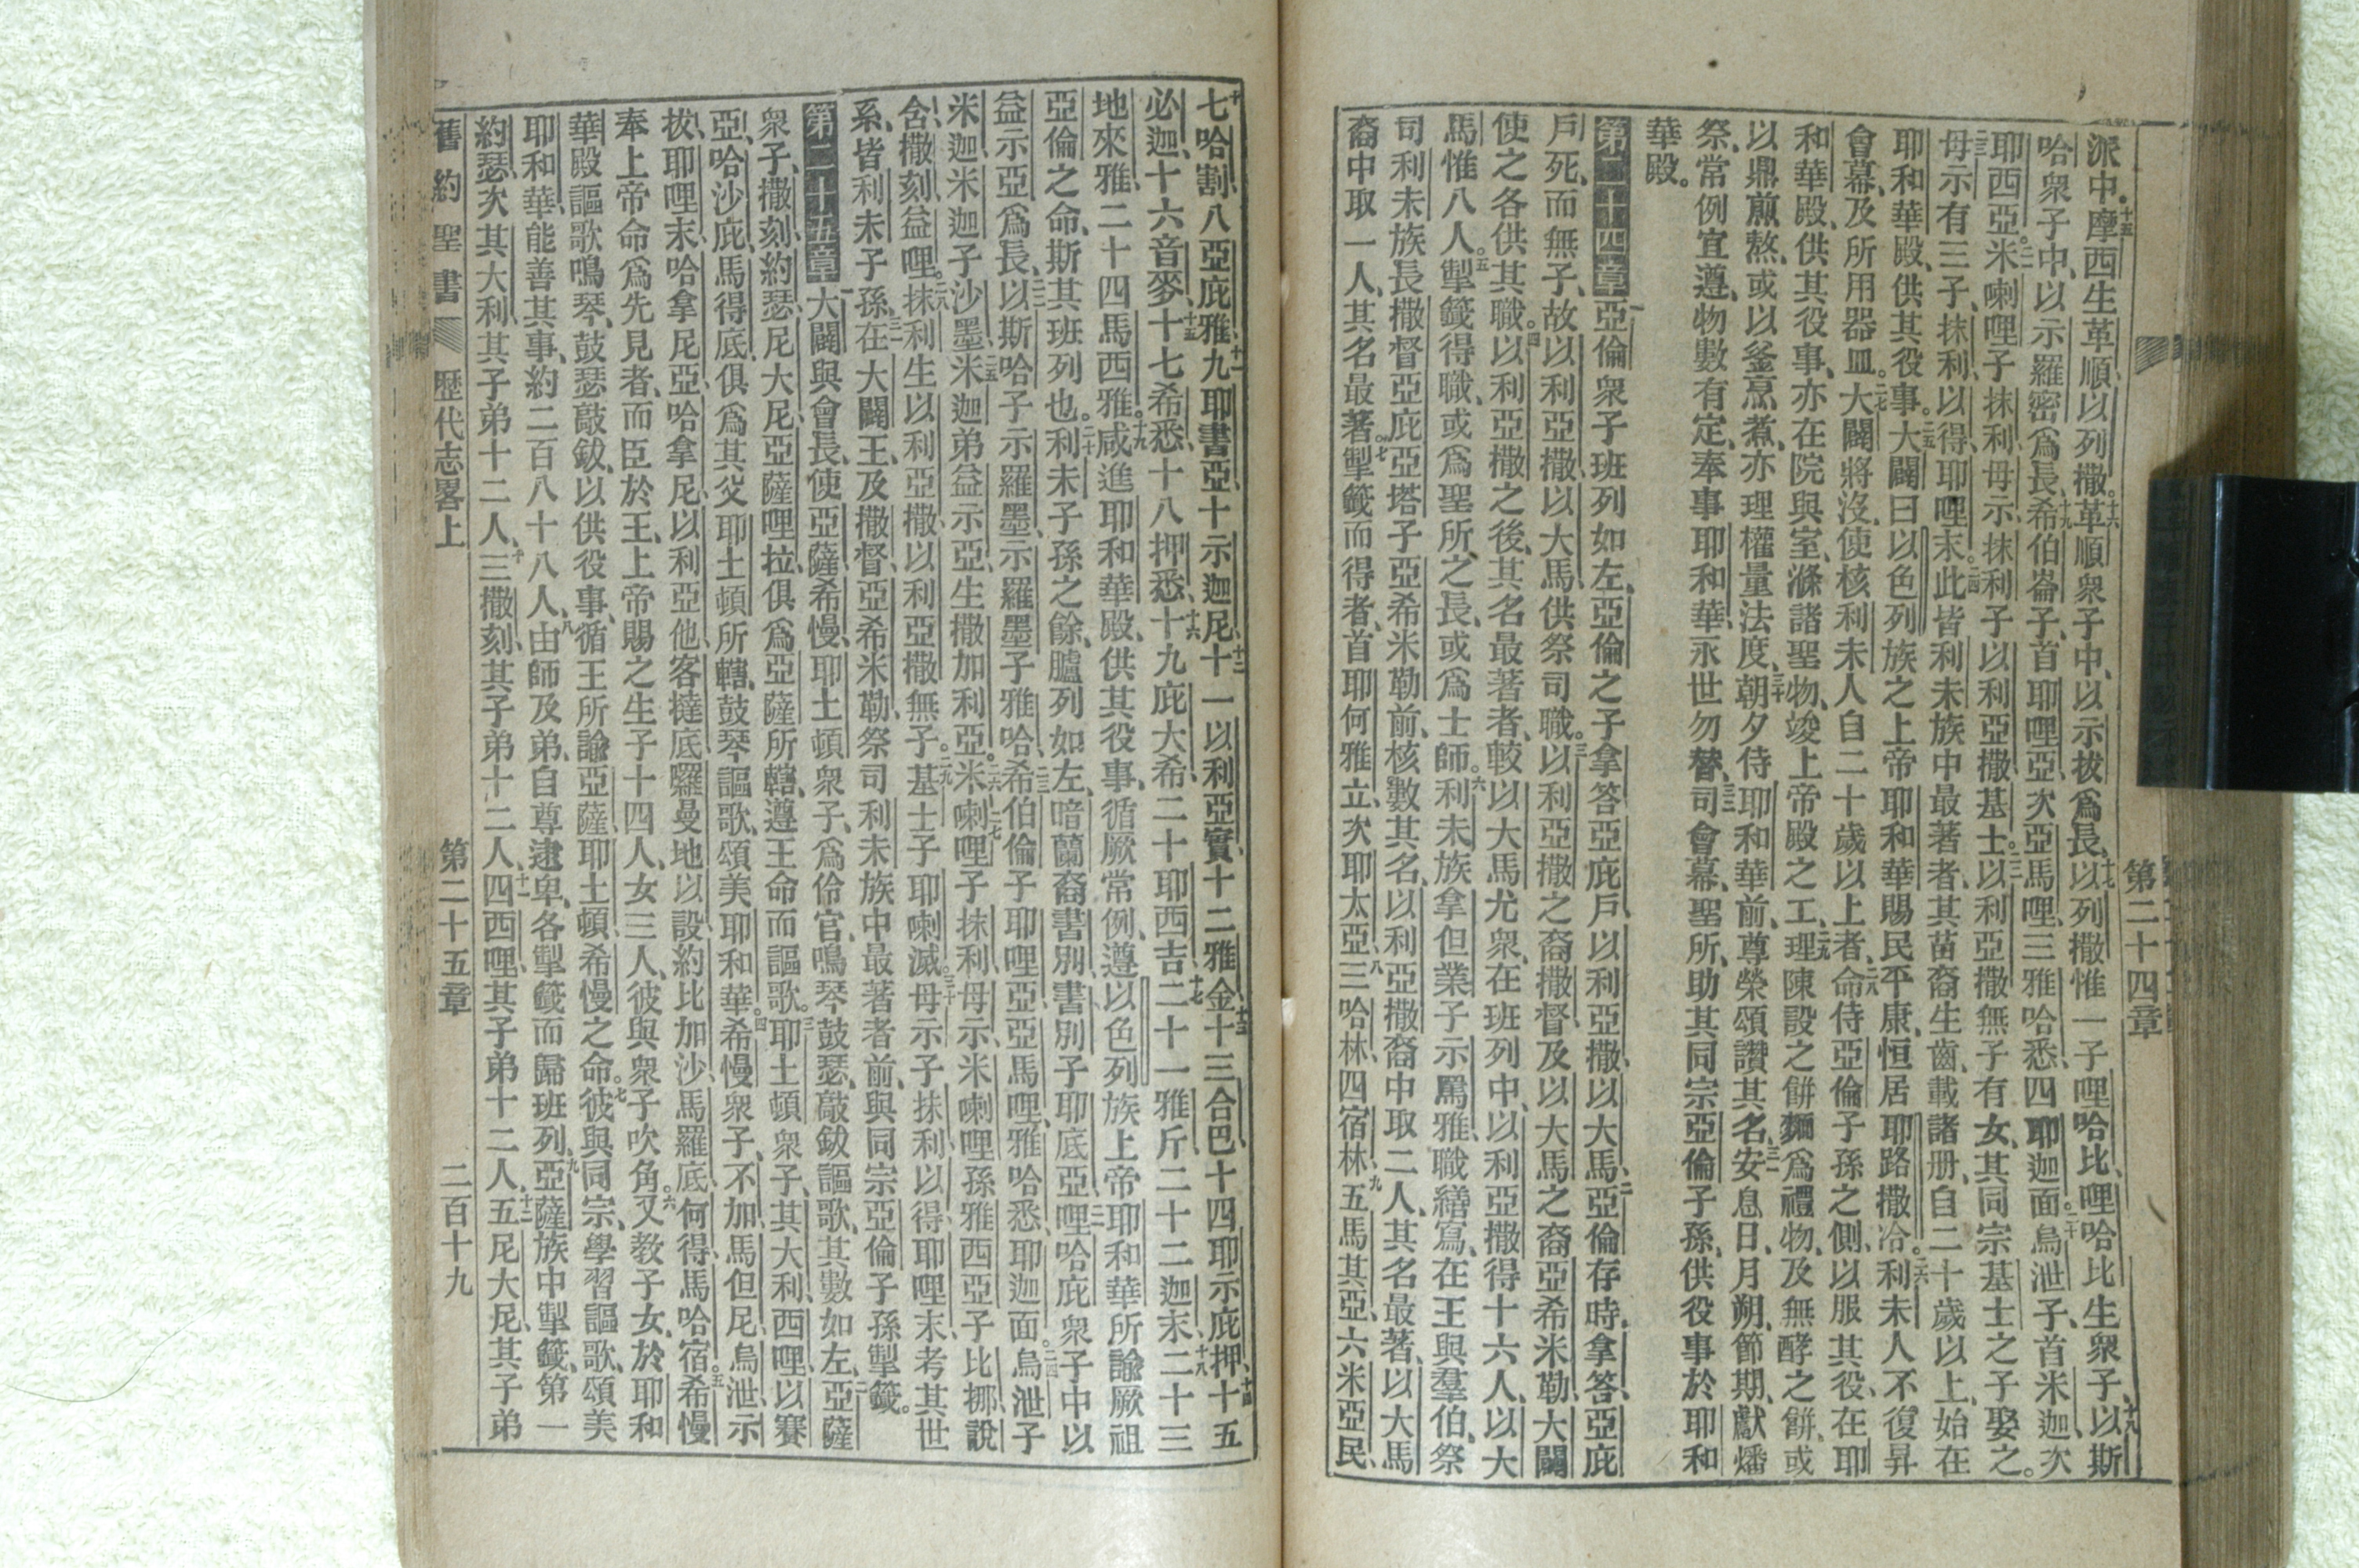 派中、摩西生革順、以列撒。革順衆子中、以示拔爲長、以列撒惟一子哩哈比、哩哈比生衆子、以斯
哈衆子中、以示羅密爲長、希伯崙子、首耶哩亞、次亞馬哩、三雅哈悉、四耶迦面。烏泄子、首米迦、次
耶西亞。米喇哩子抹利、母示、抹利子以利亞撒、基士。以利亞撒無子有女、其同宗基士之子娶之。
母示有三子、抹利、以得、耶哩末。此皆利未族中最著者、其苗裔生齒、載諸册、自二十歲以上、始在
耶和華殿、供其役事。大闢曰以色列族之上帝耶和華、賜民平康、恒居耶路撒冷。利未人不復舁
會幕、及所用器皿。大闢將沒、使核利未人自二十歲以上者、命侍亞倫子孫之側、以服其役、在耶
和華殿、供其役事、亦在院與室、滌諸聖物、竣上帝殿之工、理陳設之餅、麵爲禮物、及無酵之餅、或
以鼎煎熬、或以釜烹煮、亦理權量法度、朝夕侍耶和華前、尊榮頌讚其名、安息日、月朔、節期、獻燔
祭、常例宜遵、物數有定、奉事耶和華、永世勿替、司會幕、聖所、助其同宗亞倫子孫、供役事於耶和
華殿。
第二十四章 亞倫衆子班列如左、亞倫之子拿答亞庇戶以利亞撒、以大馬、亞倫存時、拿答、亞庇
戶死、而無子、故以利亞撒、以大馬、供祭司職。以利亞撒之裔撒督、及以大馬之裔亞希米勒、大闢
使之各供其職。以利亞撒之後、其名最著者、較以大馬尤衆、在班列中、以利亞撒得十六人、以大
馬惟八人。掣籤得職、或爲聖所之長、或爲士師。利未族拿但業子示罵雅、職繕寫、在王與羣伯、祭
司利未族長撒督亞庇亞塔子亞希米勒前、核數其名、以利亞撒裔中取二人、其名最著、以大馬
裔中取一人、其名最著。掣籤而得者、首耶何雅立、次耶太亞、三哈林、四宿林、五馬其亞、六米亞民、
七哈割、八亞庇雅、九耶書亞、十示迦尼、十一以利亞實、十二雅金、十三合巴、十四耶示庇押、十五
必迦、十六音麥、十七希悉、十八押悉、十九庇大希、二十耶西吉、二十一雅斤、二十二迦末、二十三
地來雅、二十四馬西雅。咸進耶和華殿、供其役事、循厥常例、遵以色列族上帝耶和華所諭厥祖
亞倫之命、斯其班列也。利未子孫之餘、臚列如左、暗蘭裔書別、書別子耶底亞、哩哈庇衆子中、以
益示亞爲長、以斯哈子示羅墨、示羅墨子雅哈、希伯倫子耶哩亞、亞馬哩、雅哈悉、耶迦面。烏泄子
米迦、米迦子沙墨、米迦弟益示亞、生撒加利亞。米喇哩子抹利、母示、米喇哩孫雅西亞子比挪、說
含、撒刻、益哩。抹利生以利亞撒、以利亞撒無子。基士子耶喇滅。母示子抹利、以得、耶哩末、考其世
系、皆利未子孫、在大闢王、及撒督、亞希米勒、祭司利未族中最著者前、與同宗亞倫子孫掣籤。
第二十五章 大闢與會長、使亞薩、希幔、耶土頓衆子、爲伶官、鳴琴鼓瑟、敲鈸謳歌、其數如左、亞薩
衆子、撒刻、約瑟、尼大尼、亞薩哩拉、俱爲亞薩所轄、遵王命而謳歌。耶土頓衆子、其大利、西哩、以賽
亞、哈沙庇、馬得底、俱爲其父耶土頓所轄、鼓琴謳歌、頌美耶和華。希幔衆子、不加、馬但尼、烏泄、示
拔、耶哩末、哈拿尼亞、哈拿尼、以利亞他、客撻底、囉曼地以設、約比加沙、馬羅底、何得、馬哈宿、希幔
奉上帝命、爲先見者、而臣於王、上帝賜之生子十四人、女三人、彼與衆子吹角。又教子女、於耶和
華殿謳歌鳴琴、鼓瑟敲鈸、以供役事、循王所諭亞薩、耶土頓、希幔之命。彼與同宗、學習謳歌、頌美
耶和華、能善其事、約二百八十八人、由師及弟、自尊逮卑、各掣籤而歸班列、亞薩族中掣籤、第一
約瑟、次其大利、其子弟十二人、三撒刻、其子弟十二人、四西哩、其子弟十二人、五尼大尼、其子弟
舊約聖書 歷代志畧上 第二十五章 二百十九
第二十四章